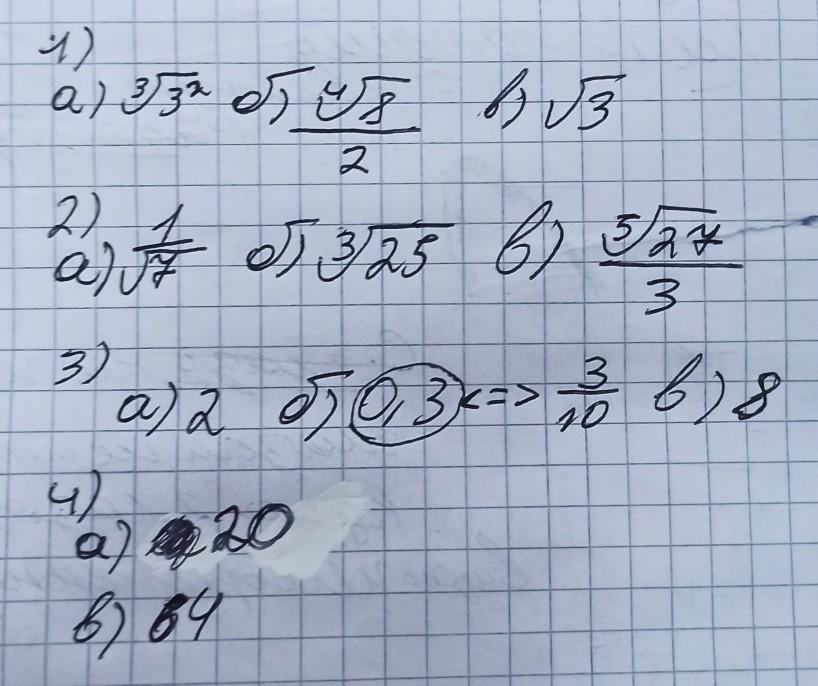 1)
а) ∛3² б) ∜8/2 в) √3
2)
а) 1/√7 б) ∛25 в) ⁵√27/3
3)
а) 2 б) 0,3 <=> 3/10 в) 8
4)
а) 20
в) 64